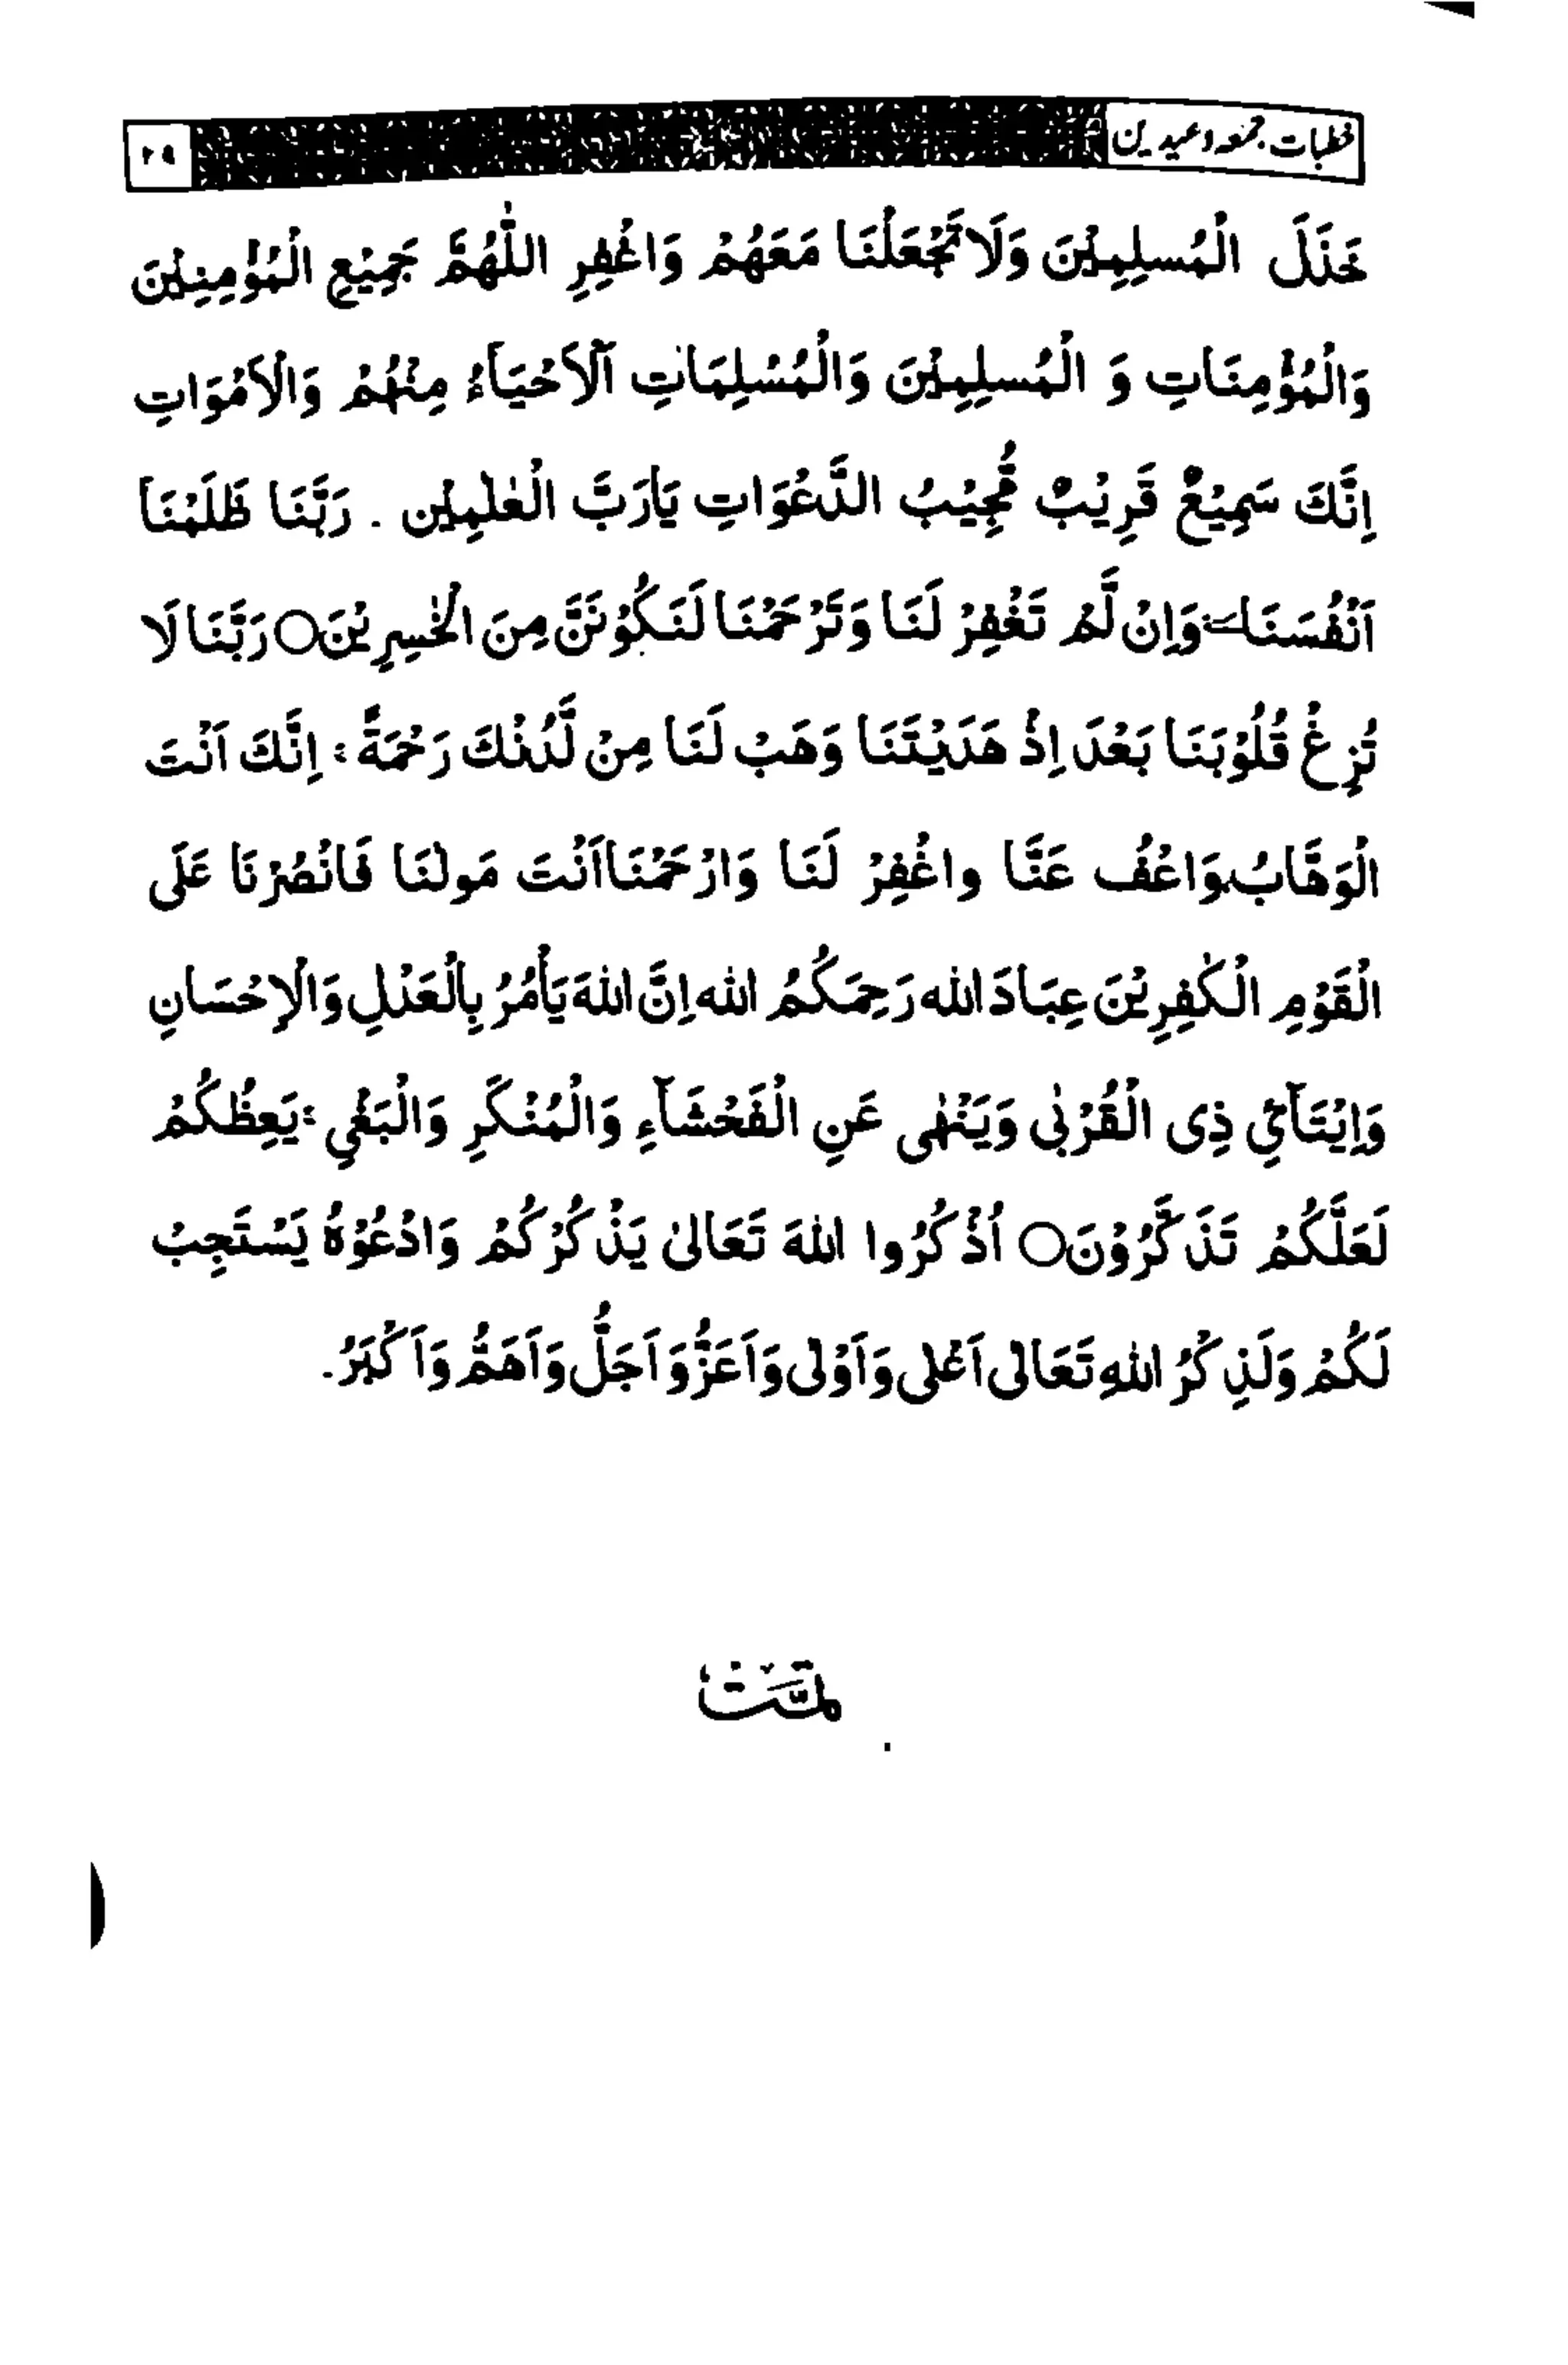 خطبات جمعہ و عیدین
۲۹
خَذَلَ الْمُسلِمِيْنَ وَلَا تَجْعَلْنَا مَعَهُمْ وَاغْفِرِ اللّٰهُمَّ جَمِيْعِ الْمُؤْمِنِيْنَ
وَالْمُؤْمِنَاتِ وَ الْمُسلِمِيْنَ وَالْمُسْلِمَاتِ اَلْاَحْيَآءُ مِنْهُمْ وَالْاَمْوَاتِ
اِنَّكَ سَمِيْعٌ قَرِيْبٌ مُّجِيْبُ الدَّعْوَاتِ يَارَبَّ الْعٰلَمِيْن ۔ رَبَّنَا ظَلَمْنَا
اَنْفُسَنَا وَاِنْ لَّمْ تَغْفِرْ لَنَا وَتَرْحَمْنَا لَنَكُوْنَنَّ مِنَ الْخٰسِرِيْنَ○ رَبَّنَا لَا
تُزِغْ قُلُوْبَنَا بَعْدَ اِذْ هَدَيْتَنَا وَهَبْ لَنَا مِنْ لَّدُنْكَ رَحْمَةً ۚ اِنَّكَ اَنْتَ
الْوَهَّابُ وَاعْفُ عَنَّا واغْفِرْ لَنَا وَارْحَمْنَا اَنْتَ مَولٰنَا فَانْصُرْنَا عَلَى
الْقَوْمِ الْكٰفِرِيْنَ عِبَادَ الله رَحِمَكُمُ الله اِنَّ اللهَ يَأْمُرُ بِالْعَدْلِ وَالْاِحْسَانِ
وَاِيْتَآئِ ذِى الْقُرْبٰى وَيَنْهٰى عَنِ الْفَحْشَآءِ وَالْمُنْكَرِ وَالْبَغْيِ ۚ يَعِظُكُمْ
لَعَلَّكُمْ تَذَكَّرُوْنَ○ اُذْكُرُوا اللهَ تَعَالىٰ يَذْكُرْكُمْ وَادْعُوْهُ يَسْتَجِبْ
لَكُمْ وَلَذِكْرُ اللهِ تَعَالى اَعْلى وَاَوْلى وَاَعَزُّ وَاَجَلُّ وَاَهَمُّ وَاَكْبَرُ۔
تمت